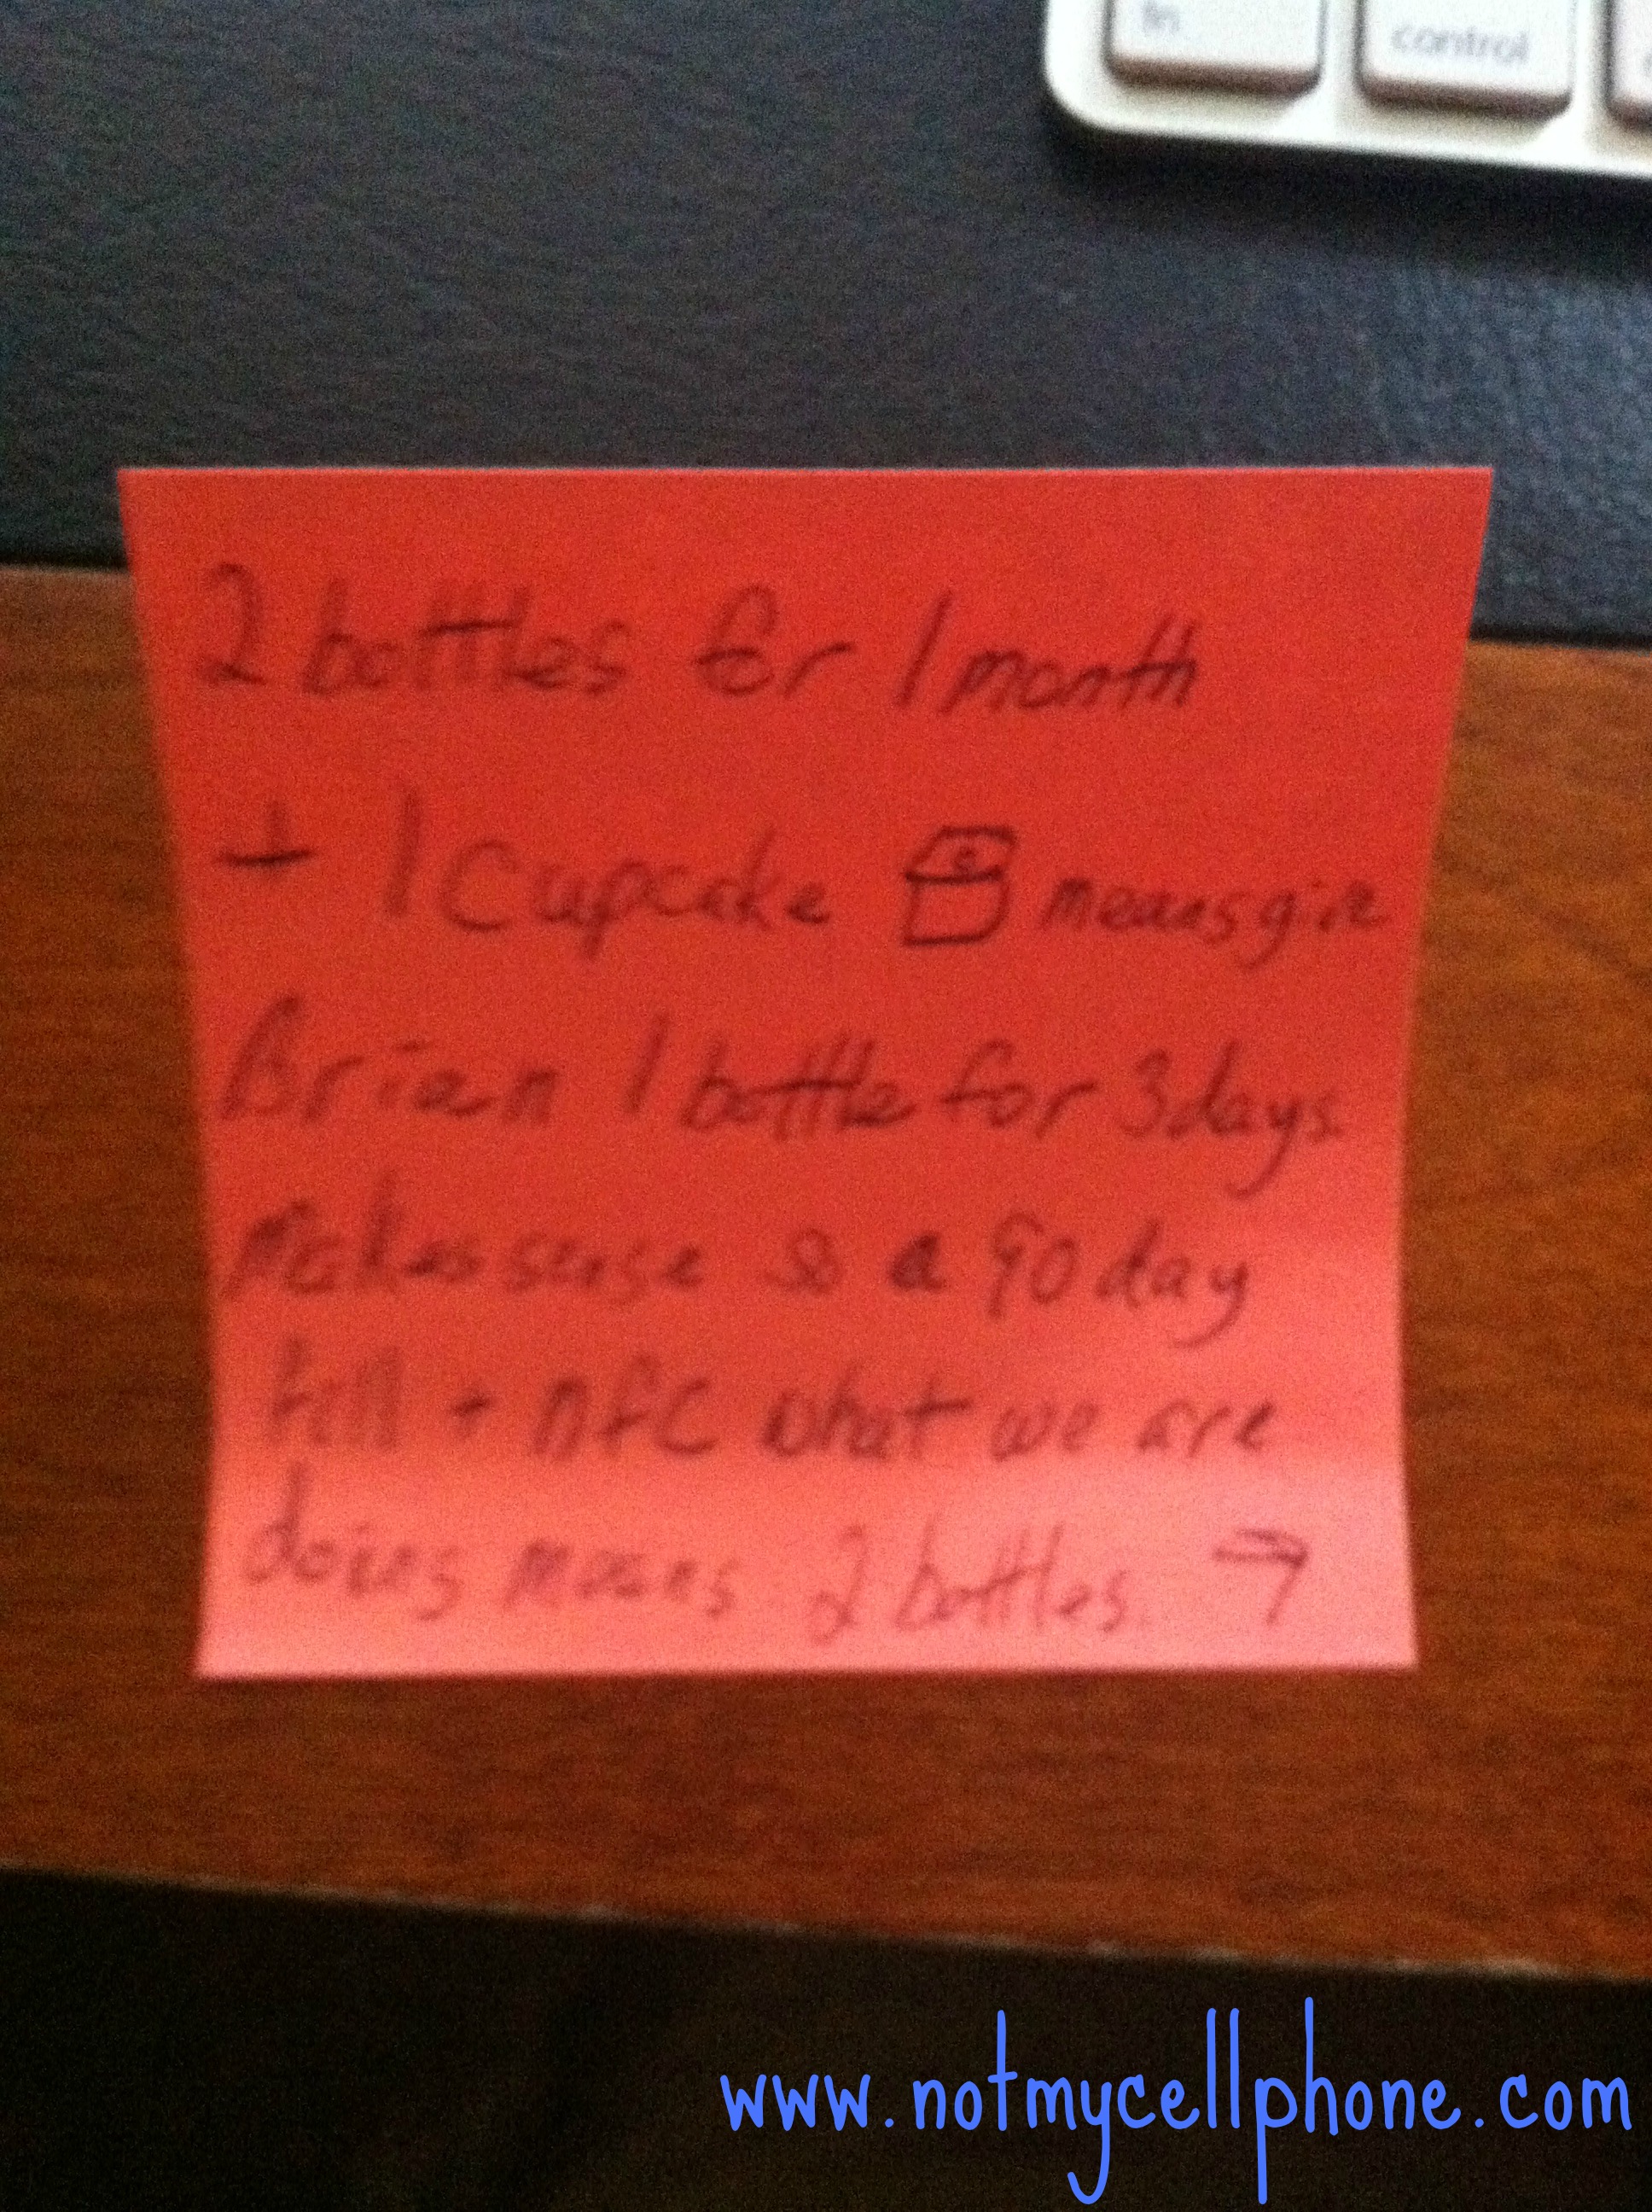 fn
control
2 bottles for 1 month
+ 1 Cupcake means give
Brian 1 bottle for 3 days.
Makes sense so a 90 day
+ nfc what we are
doing means 2 bottles. →
www.notmycellphone.com